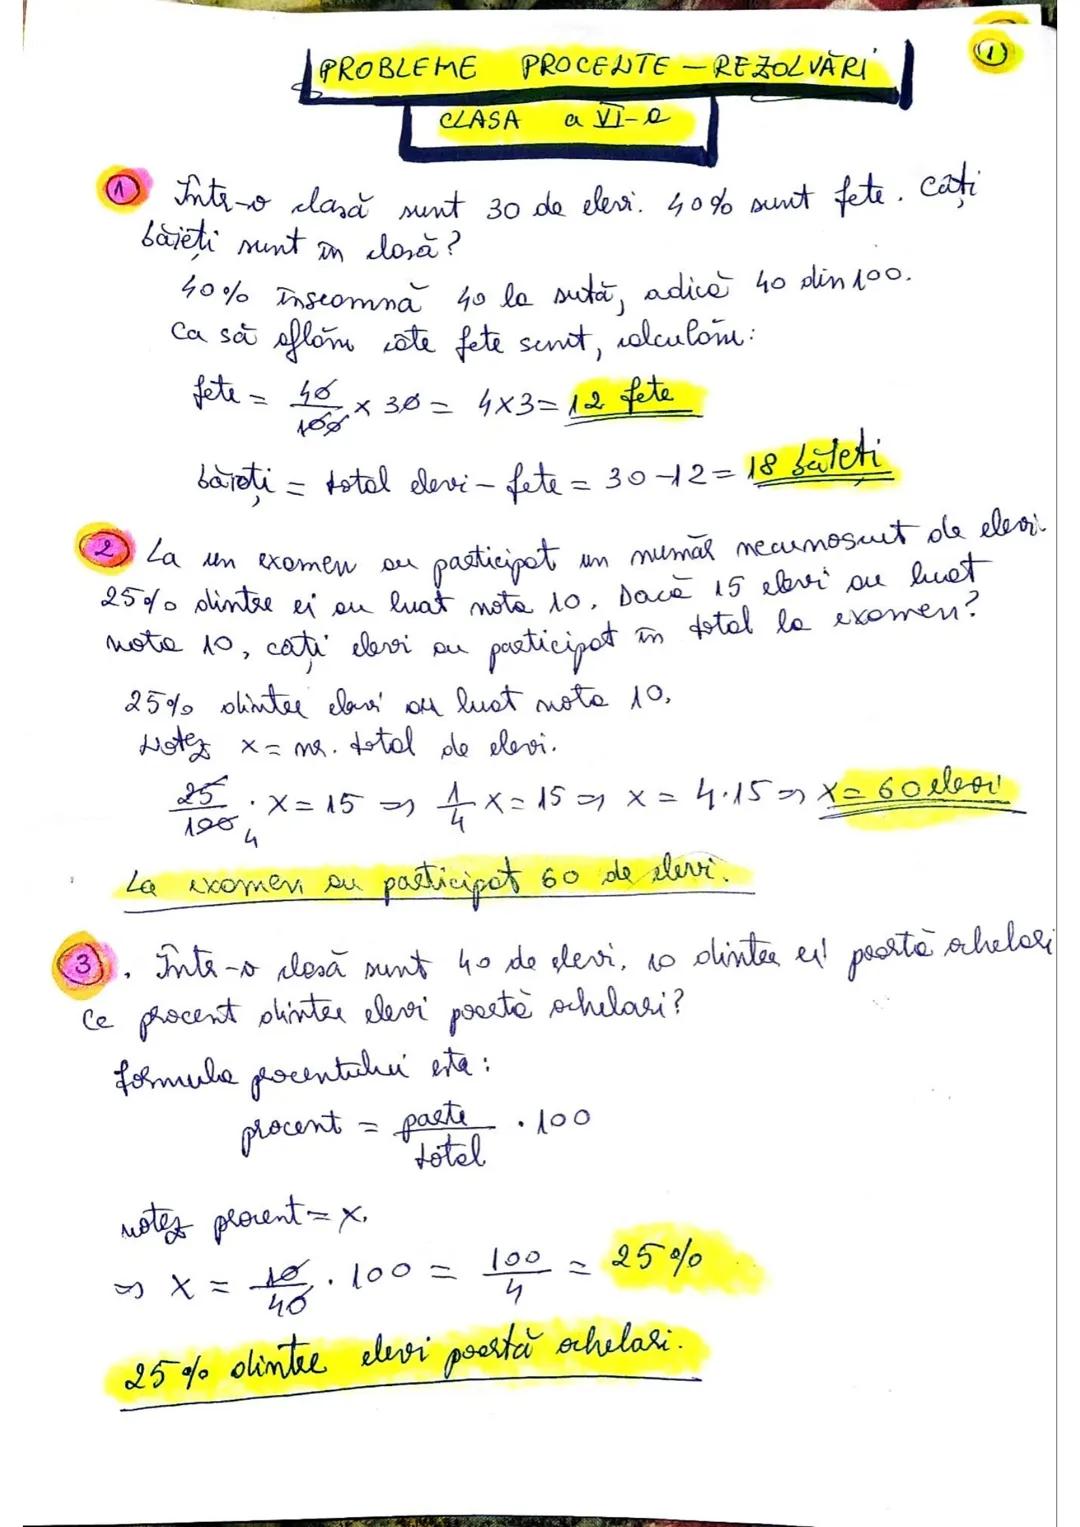 1
PROBLEME PROCENTE – REZOLVĂRI
CLASA a VI-a
1 Într-o clasă sunt 30 de elevi. 40% sunt fete. Câți
băieți sunt în clasă?
40% înseamnă 40 la sută, adică 40 din 100.
Ca să aflăm câte fete sunt, calculăm:
fete = 40/100 x 30 = 4x3 = 12 fete
băieți = total elevi – fete = 30 -12 = 18 băieți
2 La un examen au participat un număr necunoscut de elevi
25% dintre ei au luat nota 10. Dacă 15 elevi au luat
nota 10, câți elevi au participat în total la examen?
25% dintre elevi au luat nota 10.
Notez x = nr. total de elevi.
25/100 4 · x = 15 => 1/4 x = 15 => x = 4·15 => x = 60 elevi
La examen au participat 60 de elevi.
3. Într-o clasă sunt 40 de elevi. 10 dintre ei poartă ochelari
Ce procent dintre elevi poartă ochelari?
formula procentului este:
procent = parte/total · 100
notez procent = x.
=> x = 10/40 · 100 = 100/4 = 25%
25% dintre elevi poartă ochelari.